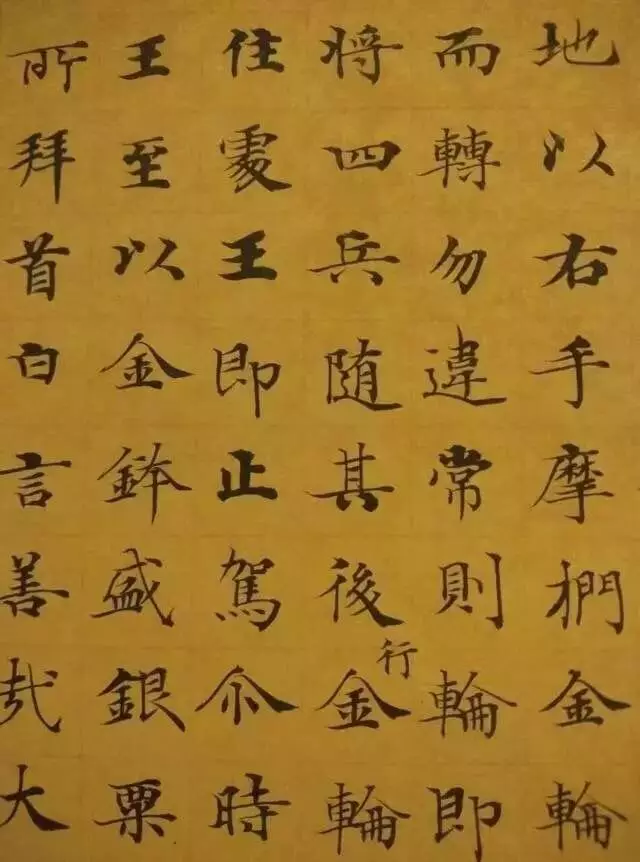 地以右手摩捫金輪
而轉勿違常則輪即
将四兵随其後行金輪
住處王即止駕尒時
王至以金鉢盛銀粟
所拜首白言善哉大